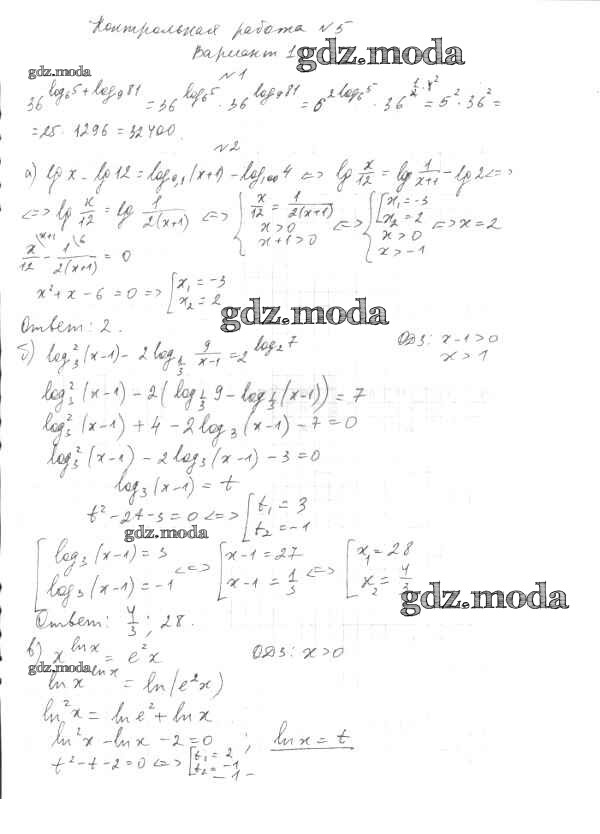 Контрольная работа №5
Вариант 1
gdz.moda
gdz.moda
№1
36^(log₆5 + log₉81) = 36^(log₆5) · 36^(log₉81) = 6^(2log₆5) · 36^(½·4) = 5² · 36² =
= 25 · 1296 = 32400.
№2
а) lg x - lg 12 = log₀,₁(x+1) - log₁₀₀4 <=> lg x/12 = lg 1/(x+1) - lg 2 <=>
<=> lg x/12 = lg 1/(2(x+1)) <=> { x/12 = 1/(2(x+1)) x > 0 x+1 > 0 <=> { [ x₁ = -3 x₂ = 2 x > 0 x > -1 <=> x = 2
x/12 - 1/(2(x+1)) = 0
x² + x - 6 = 0 => [ x₁ = -3 x₂ = 2
gdz.moda
Ответ: 2.
б) log₃²(x-1) - 2log_⅓ 9/(x-1) = 2^(log₂7) ОДЗ: x-1 > 0
x > 1
log₃²(x-1) - 2(log_⅓ 9 - log_⅓(x-1)) = 7
log₃²(x-1) + 4 - 2log₃(x-1) - 7 = 0
log₃²(x-1) - 2log₃(x-1) - 3 = 0
log₃(x-1) = t
t² - 2t - 3 = 0 <=> [ t₁ = 3 t₂ = -1
gdz.moda
[ log₃(x-1) = 3 log₃(x-1) = -1 <=> [ x-1 = 27 x-1 = 1/3 <=> [ x₁ = 28 x₂ = 4/3
gdz.moda
Ответ: 4/3; 28.
в) x^(ln x) = e²x ОДЗ: x > 0
gdz.moda
ln x^(ln x) = ln(e²x)
ln²x = ln e² + ln x
ln²x - ln x - 2 = 0 ; ln x = t
t² - t - 2 = 0 <=> [ t₁ = 2 t₂ = -1
- 1 -